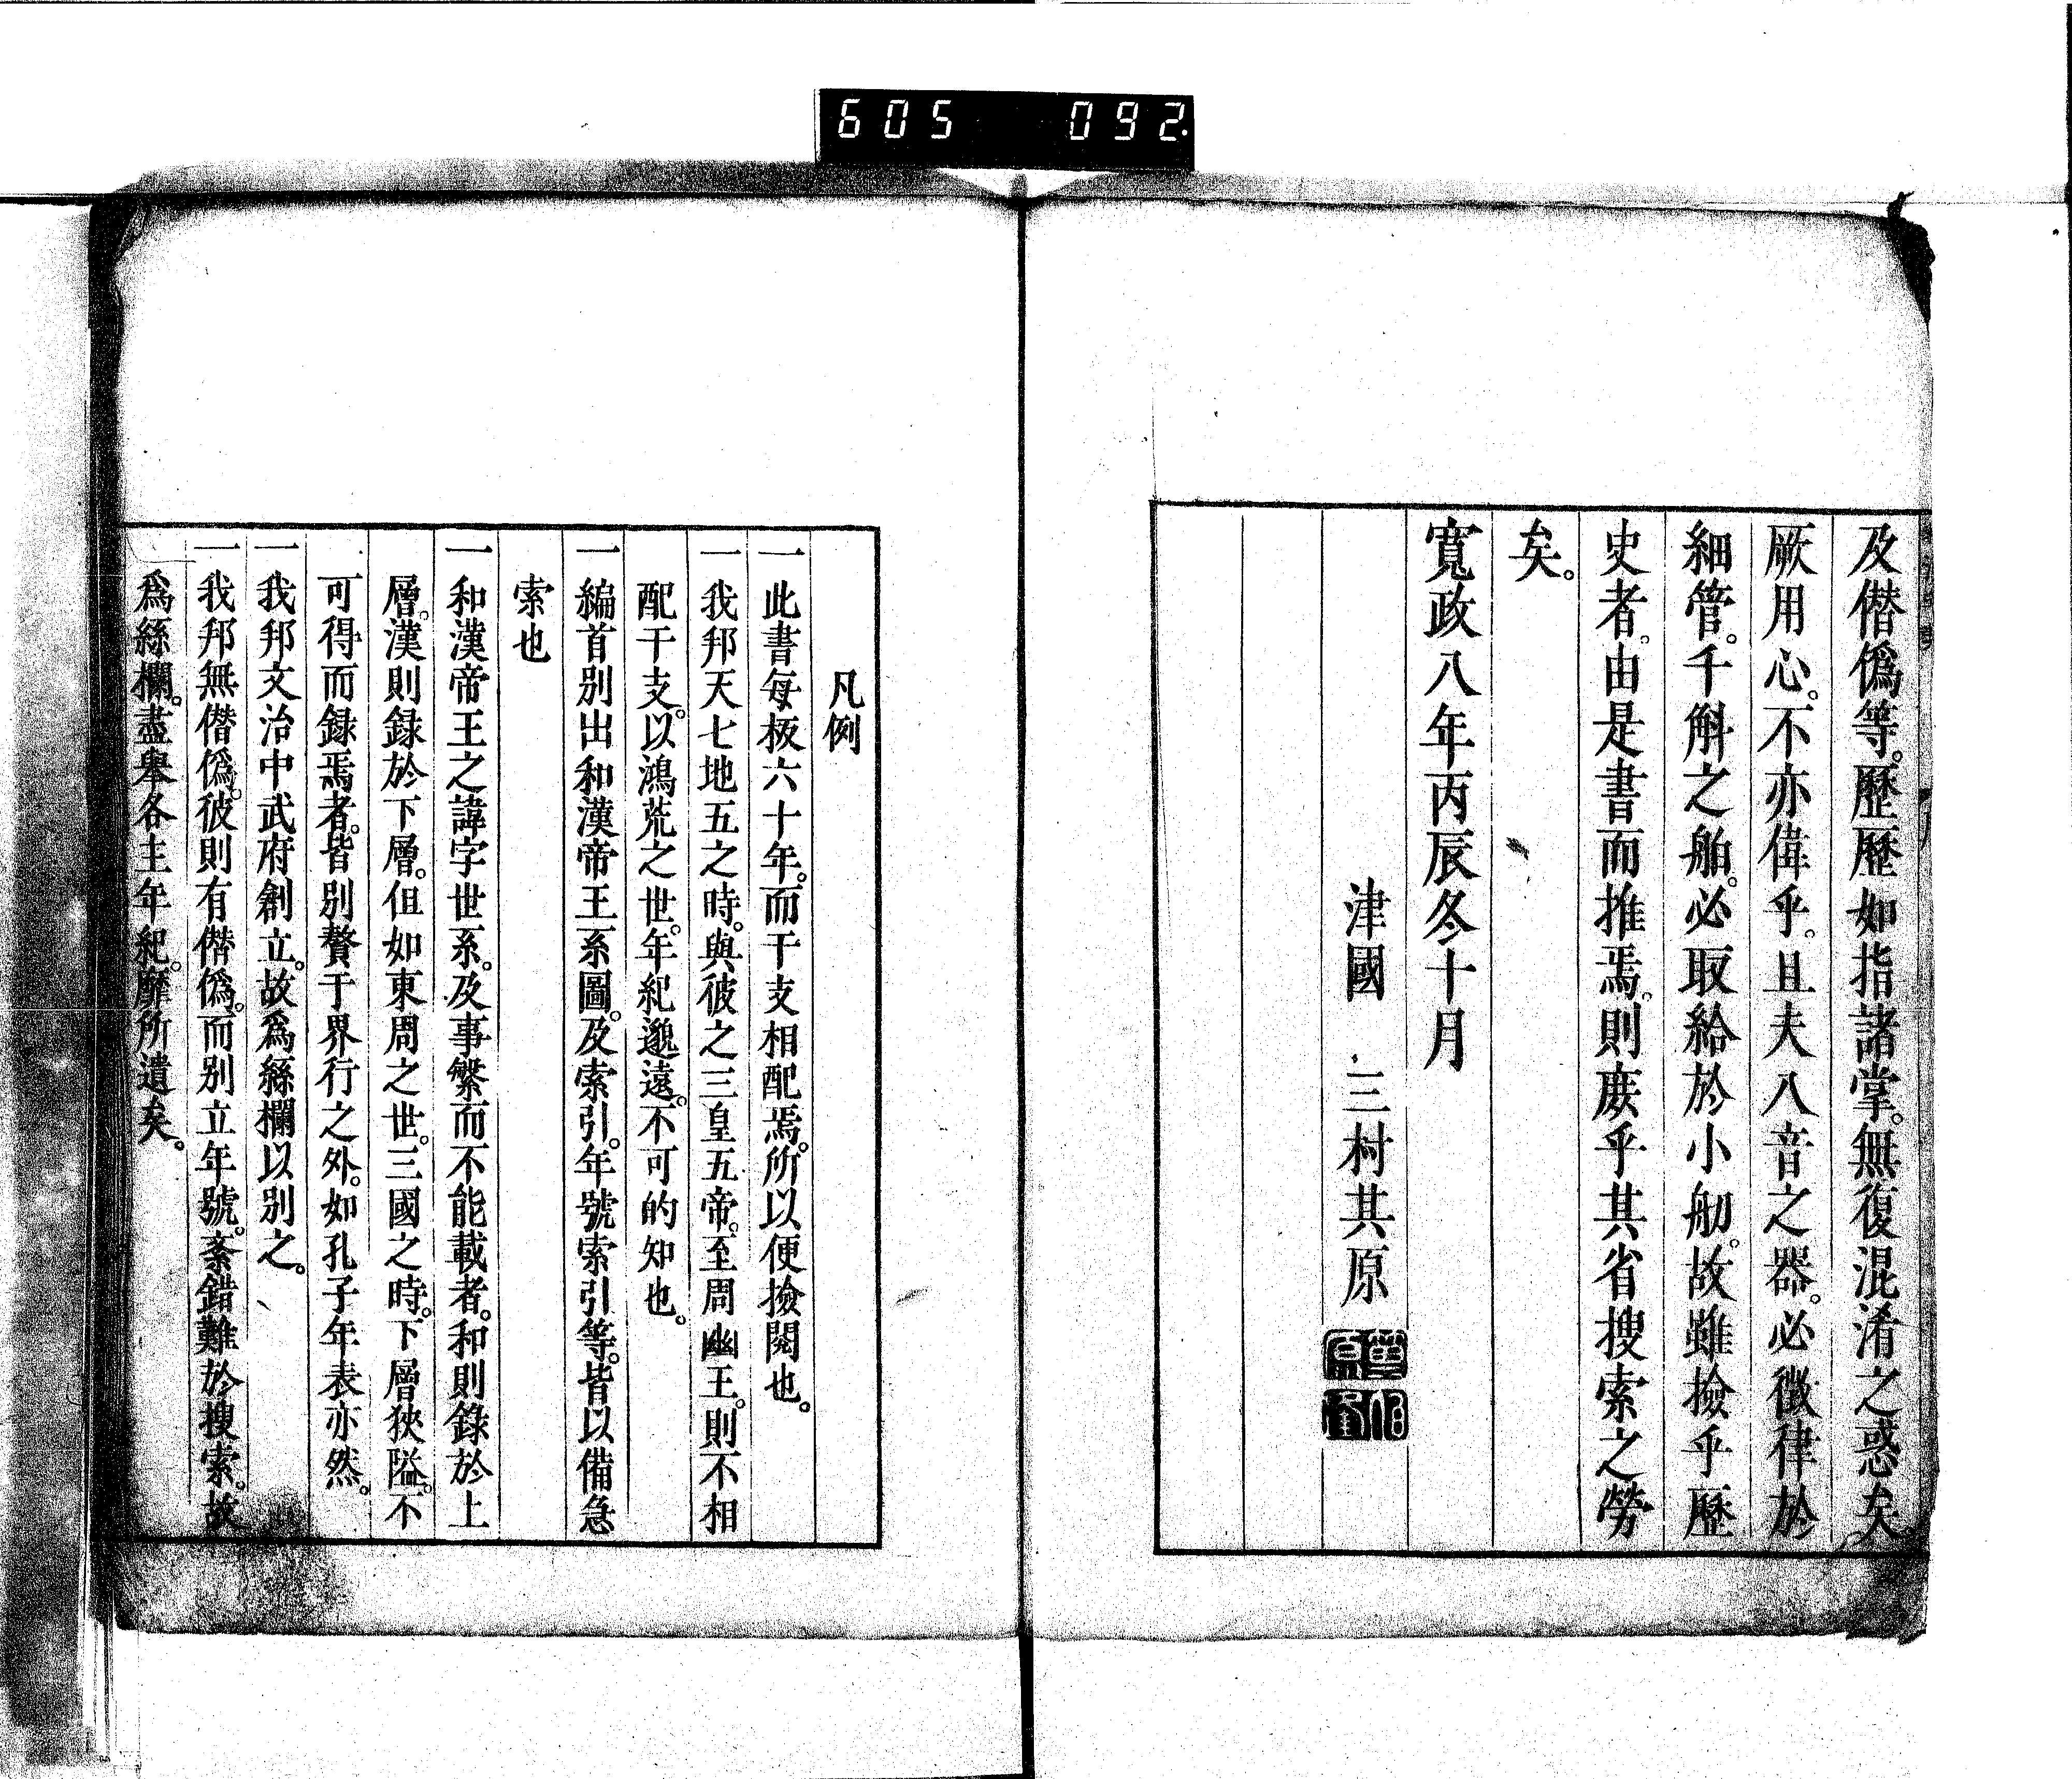 605 092
及僭僞等。歷歷如指諸掌。無復混淆之惑矣
厥用心。不亦偉乎。且夫八音之器。必徵律於
細管。千斛之舶。必取給於小舠。故雖撿乎歷
史者。由是書而推焉。則庶乎其省搜索之勞
矣。
寬政八年丙辰冬十月
津國 三村其原
凡例
一此書每板六十年。而干支相配焉。所以便撿閱也。
一我邦天七地五之時。與彼之三皇五帝。至周幽王。則不相
配干支。以鴻荒之世。年紀邈遠。不可的知也。
一編首別出和漢帝王系圖。及索引。年號索引等。皆以備急
索也
一和漢帝王之諱字世系。及事繁而不能載者。和則錄於上
層。漢則録於下層。但如東周之世。三國之時。下層狹隘。不
可得而録焉者。皆別贅于界行之外。如孔子年表亦然。
一我邦文治中武府創立。故爲絲欄以別之。
一我邦無僭僞。彼則有僭僞。而別立年號。紊錯難於搜索。故
爲絲欄。盡舉各主年紀。靡所遺矣。